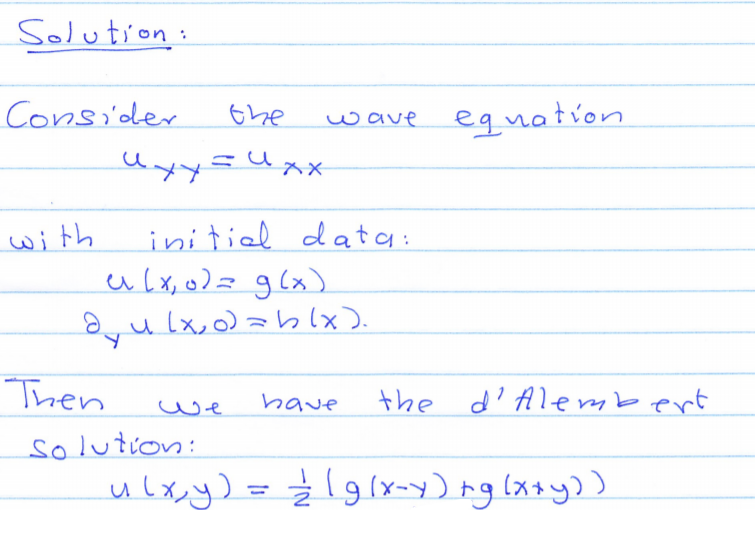 Solution:
Consider the wave equation
u_yy = u_xx
with initial data:
u(x,0) = g(x)
∂_y u(x,0) = h(x).
Then we have the d'Alembert
solution:
u(x,y) = 1/2 (g(x-y) + g(x+y))